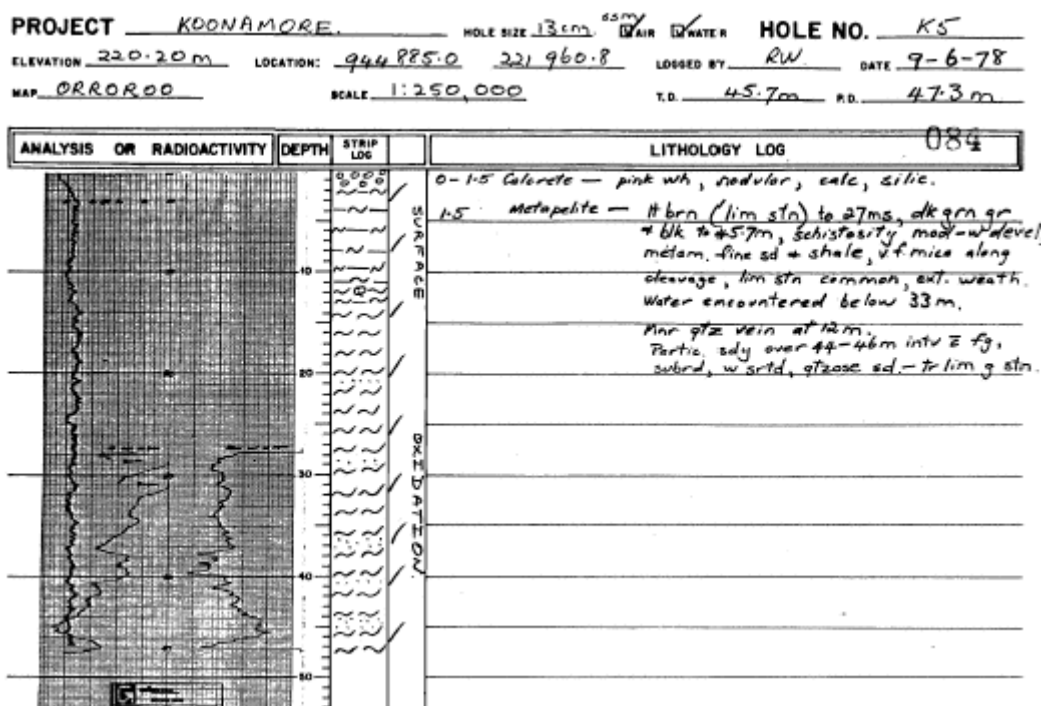 PROJECT KOONAMORE. HOLE SIZE 13cm. 65m AIR WATER HOLE NO. K5
ELEVATION 220·20m LOCATION: 944 885·0 221 960·8 LOGGED BY RW. DATE 9-6-78
MAP ORROROO SCALE 1:250,000 T.D. 45.7m P.D. 47.3m
084
ANALYSIS OR RADIOACTIVITY DEPTH STRIP LOG LITHOLOGY LOG
0-1·5 Calcrete — pink wh, nodular, calc, silic.
1·5 Metapelite — lt brn (lim stn) to 27ms, dk grn gr
+ blk to 45·7m, schistosity mod-w devel,
metam. fine sd + shale, v.f. mica along
cleavage, lim stn common, ext. weath.
Water encountered below 33m.
Mnr qtz vein at 12m.
Partic. sdy over 44-46m intv c̄ fg,
subrd, w srtd, qtzose sd. - tr lim g stn.
SURFACE
OXIDATION.
10
20
30
40
50
Q